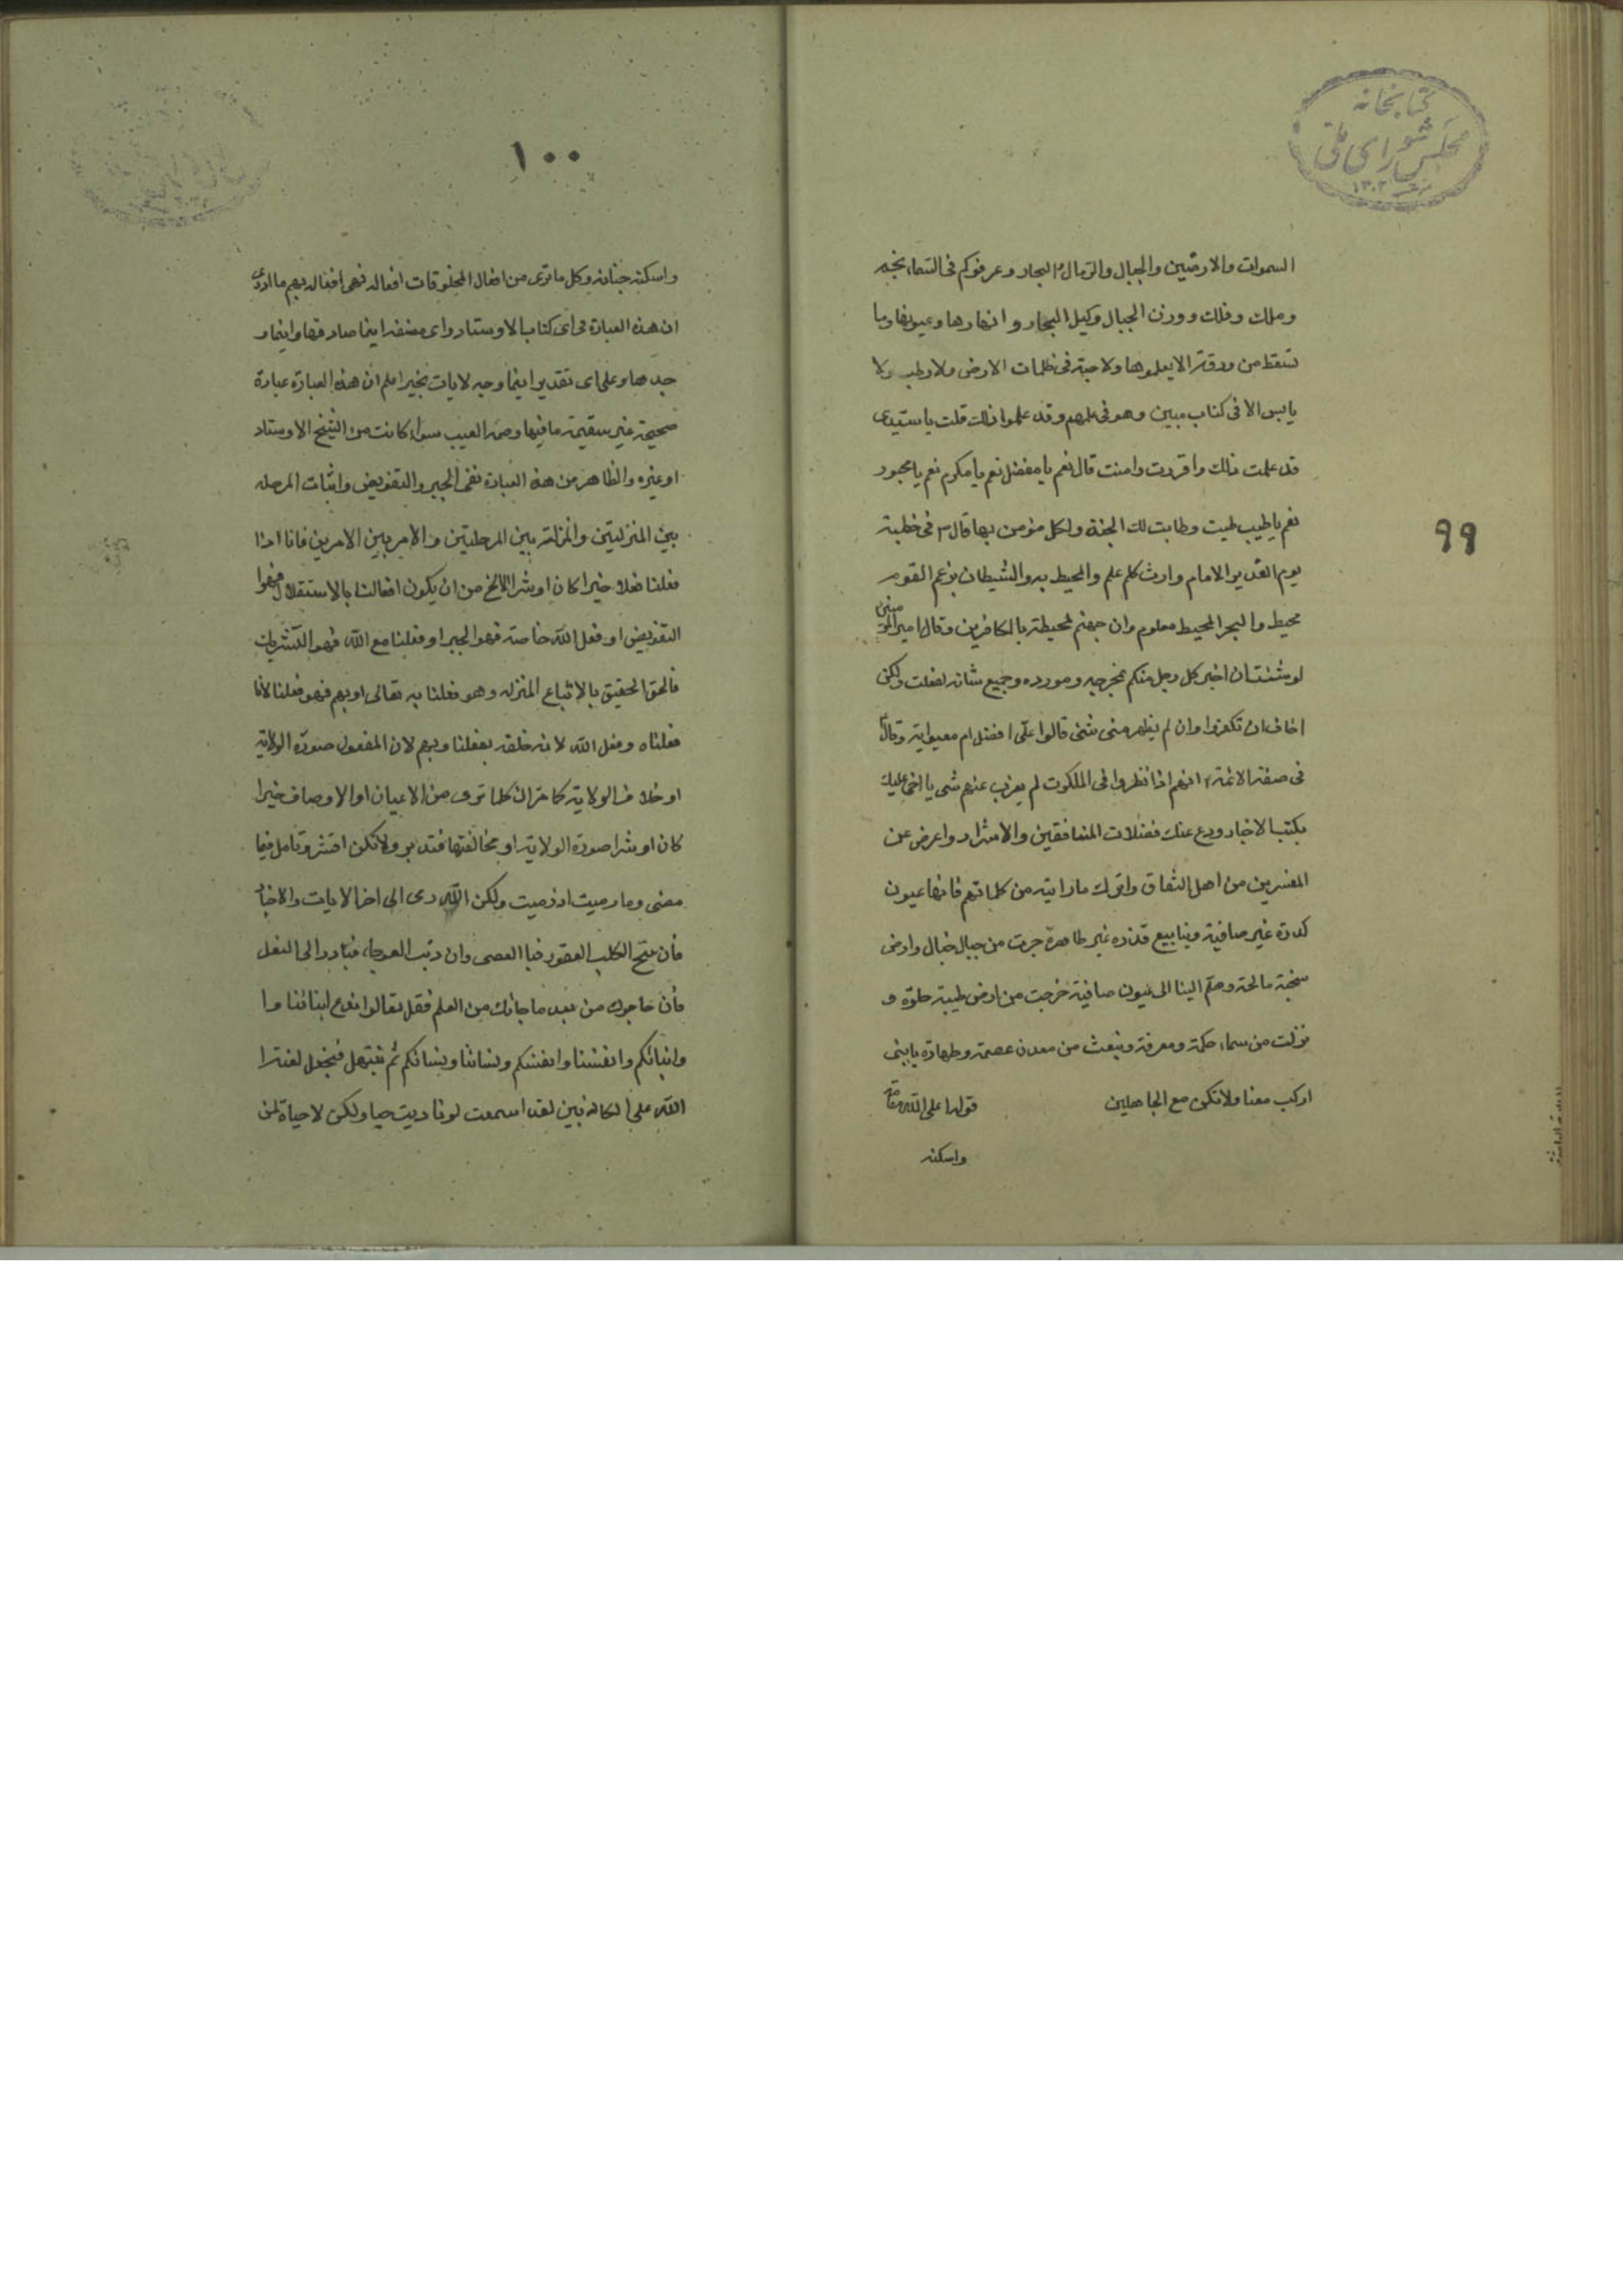 كتابخانه
مجلس شورای ملی
۱۳۰۲
السموات والارضين والجبال والرمال والبحار وعرفوكم فى السماء نجم
وملك وفلك ووزن الجبال وكيل البحار وانهارها وعيونها وما
تسقط من ورقة الا يعلموها ولا حبة فى ظلمات الارض ولا رطب ولا
يابس الا فى كتاب مبين وهو فى علمهم وقد علموا ذلك قلت يا سيدى
قد علمت ذلك واقررت وامنت قال نعم يا مفضل نعم يا مكرم نعم يا محبور
نعم يا طيب طبت وطابت لك الجنة ولكل مؤمن بها قال فى خطبة
۹۹
يوم الغدير والامام وارث كلم علم والمحيط به والشيطان بزعم القوم
محيط والبحر المحيط معلوم وان جهنم لمحيطة بالكافرين وقال امير المؤمنين
لو شئت ان اخبر كل رجل منكم بمخرجه ومورده وجميع شانه لفعلت ولكن
اخاف ان تكفروا وان لم يظهر منى شئ قالوا على افضل ام معوية وقال
فى صفة الائمة انهم اذا نظروا فى الملكوت لم يعزب عنهم شى يا اخى عليك
بكتب الاخبار ودع عنك فضلات المنافقين والاشرار واعرض عن
المفسرين من اهل النفاق واترك ما رايته من كلماتهم فانها عيون
كدرة غير صافية وينابيع قذره غير طاهرة جرت من جبال خبال وارض
سبخة مالحة وهلم الينا الى عيون صافية خرجت من ارض طيبة حلوة و
نزلت من سماء حكمة ومعرفة وتبعث من معدن عصمة وطهارة يا بنى
اركب معنا ولا تكن مع الجاهلين قوله اعلى الله مقامه
واسكنه
۱۰۰
واسكنه جنانه وكل ما ترى من افعال المخلوقات افعاله فهى افعاله بهم ما ادرى
ان هذه العبارة فى اى كتاب الاوستاد واى مصنفه اينما صادفها واينما و
جدها وعلى اى تقدير اينما وجه لايات بخير اعلم ان هذه العبارة عبارة
صحيحة غير سقيمة ما فيها وصمة العيب سواء كانت من الشيخ الاوستاد
او غيره والظاهر من هذه العبارة نفى الجبر والتفويض واثبات المرحله
بين المنزلتين والمنزلة بين المرحلتين والامر بين الامرين فانا اذا
فعلنا فعلا خيرا كان او شرا لا يخ من ان يكون افعالنا بالاستقلال فهوا
التفويض او فعل الله خاصة فهو الجبر او فعلنا مع الله فهو التشريك
فالحق الحقيق بالاتباع المنزله وهو فعلنا به تعالى او بهم فهو فعلنا لانا
فعلناه وفعل الله لانه خلقه بفعلنا وبهم لان المفعول صورة الولاية
او خلاف الولاية كا مر ان كلما ترى من الاعيان او الاوصاف خيرا
كان او شرا صورة الولاية او مخالفتها فتدبر ولا تكن اقشر وتامل فيما
معنى وما رميت اذ رميت ولكن الله رمى الى اخر الايات والاخبار
فان نبح الكلب العقور فبا العصى وان دبت العرجاء فبادر الى النعل
فان حاجوك من بعد ما جائك من العلم فقل تعالوا ندع ابنائنا وا
وابنائكم وانفسنا وانفسكم ونسائنا ونسائكم ثم نبتهل فنجعل لعنة ا
الله على الكاذبين لقد اسمعت لو ناديت حيا ولكن لا حياة لمن